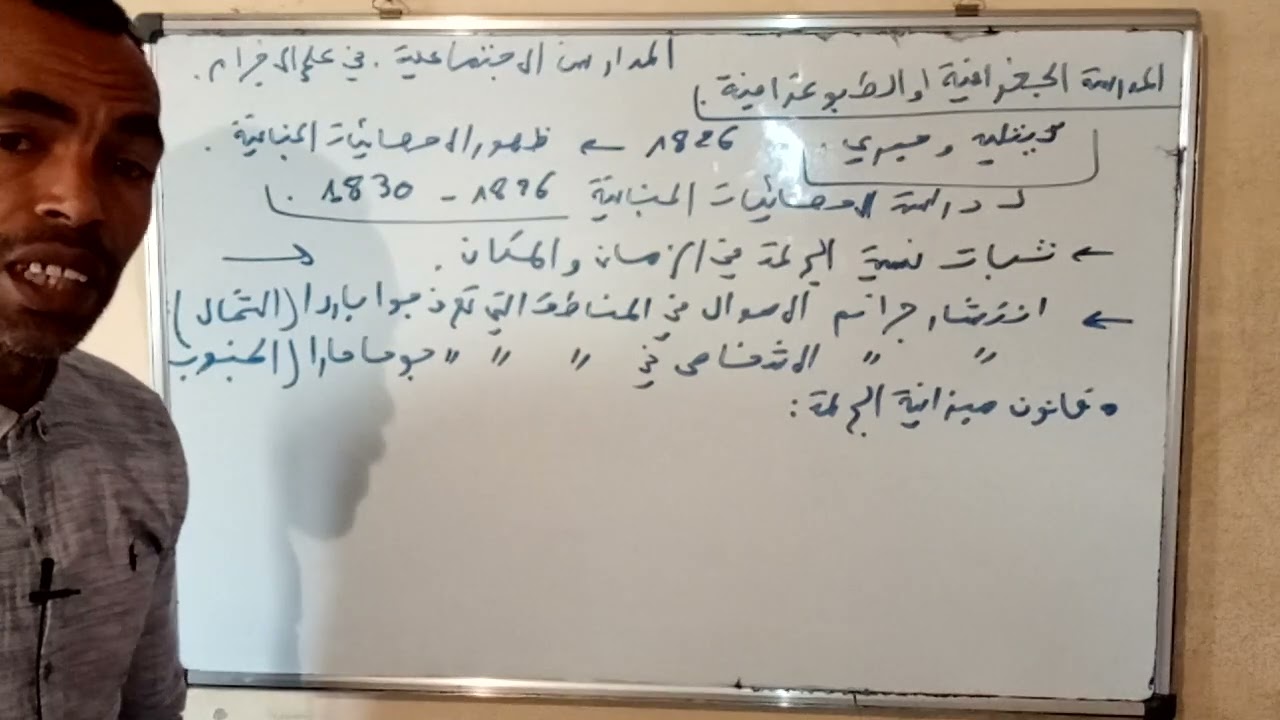 المدارس الاجتماعية في علم الاجرام.
المدرسة الجغرافية او الطبوغرافية.
كيتليه و جيري. 1826 ← ظهور الاحصائيات الجنائية.
دراسة الاحصائيات الجنائية 1826 - 1830.
← ثبات نسبة الجريمة في الزمان والمكان.
← انتشار جرائم الاموال في المناطق التي تعرف جوا باردا (الشمال)
" " الاشخاص في " " " جوا حارا (الجنوب
• قانون ميزانية الجريمة: